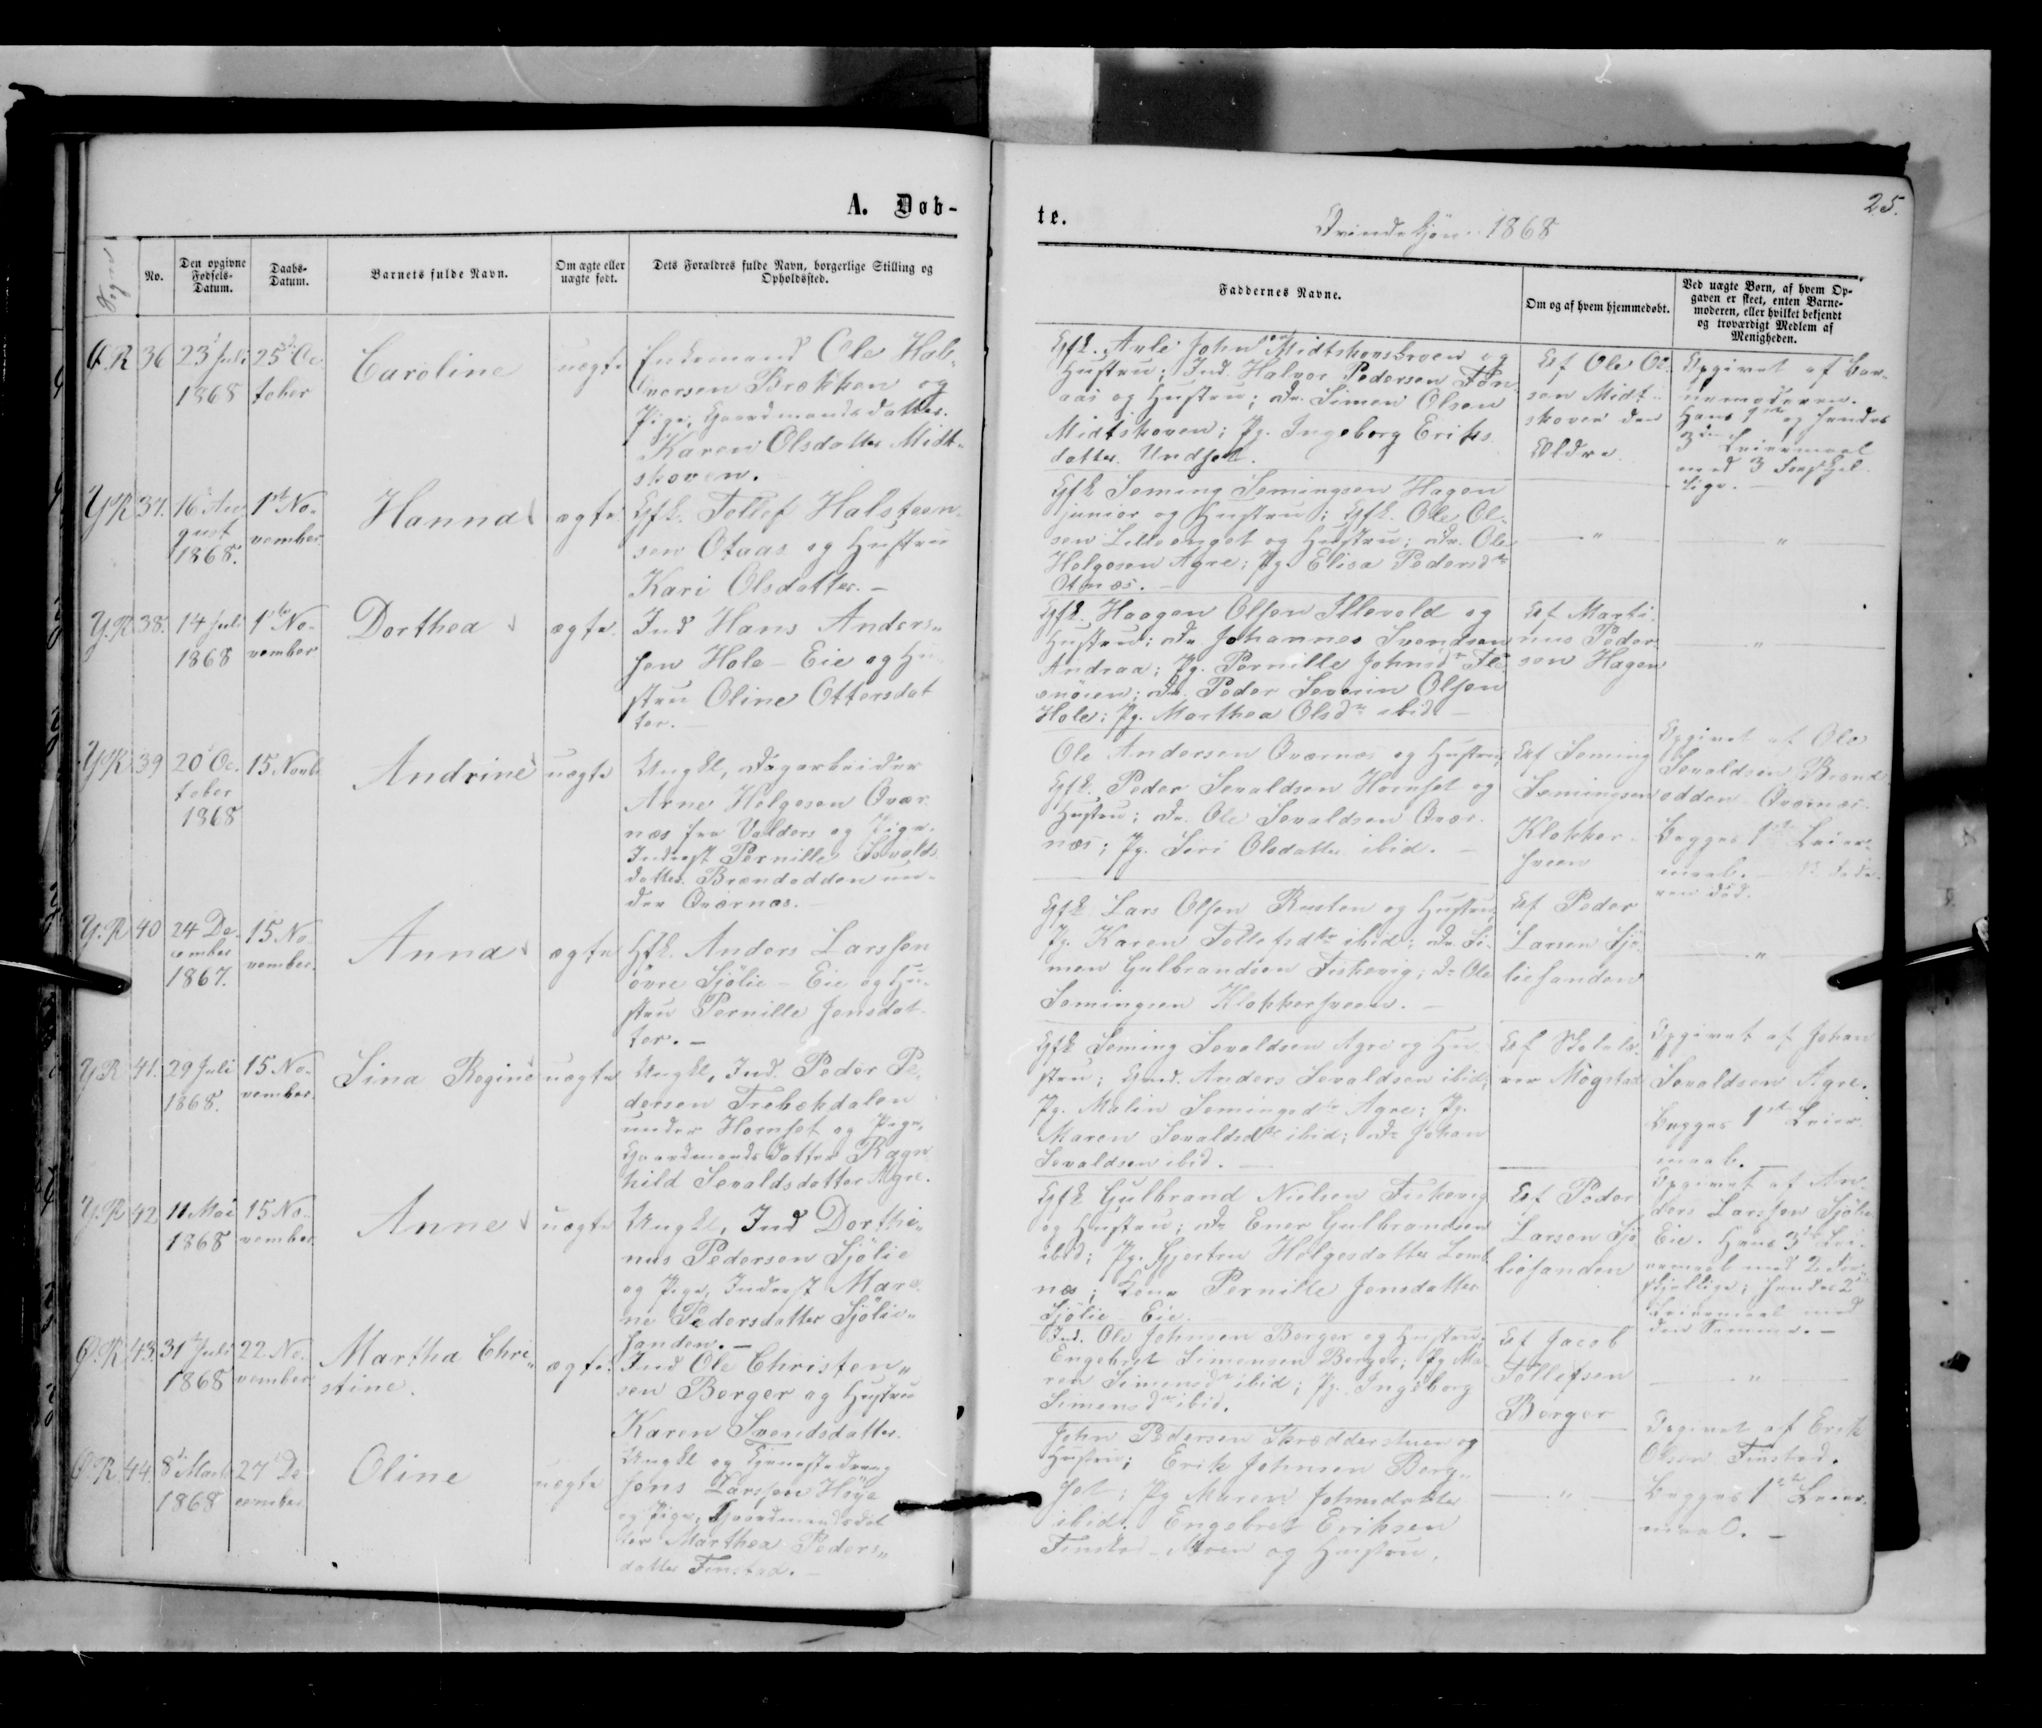 A. Døb-
te.
Qvindekjøn 1868
25.
Sogn
No.
Den opgivne
Fødsels-
Datum.
Daabs-
Datum.
Barnets fulde Navn.
Om ægte eller
uægte født.
Dets Forældres fulde Navn, borgerlige Stilling og
Opholdssted.
Faddernes Navne.
Om og af hvem hjemmedøbt.
Ved uægte Børn, af hvem Op-
gaven er skeet, enten Barne-
moderen, eller hvilket bekjendt
og troværdigt Medlem af
Menigheden.
Ø.R 36 23 Juli
1868
25 Oc-
tober
Caroline
uægte
Indemand Ole Hal-
vorsen Brækken og
Pige, Gaardmandsdatter
Karen Olsdatter Midt-
skoven.
Gfk. Avle John Midtskovskroen og
Hustru; Ind. Halvor Pedersen Fon-
aas og Hustru; Dr. Simen Olsen
Midtskoven; Pg. Ingeborg Eriks-
datter Undset.
Af Ole Ol-
sen Midt-
skoven den
Ældre.
Opgivet af Bar-
nemoderen.
Hans og hendes
3die Leiermaal
med 3 Forskjel-
lige.
Y.R 37. 16 Au-
gust
1868.
1ste No-
vember
Hanna
ægte
Gfk. Tollef Halsteen-
sen Otaas og Hustru
Kari Olsdatter. –
Gfk Seming Semingsen Hagen
junior og Hustru; Gfk. Ole Ol-
sen Lilleenget og Hustru; Dr. Ole
Helgesen Agre; Pg. Elisa Pedersdtr
Otnæs. –
— " —
— " —
Y.R 38. 14 Juli
1868
1ste No-
vember
Dorthea
ægte.
Ind Hans Anders-
sen Hole-Eie og Hu-
stru Oline Ottersdat
ter. –
Gfk. Haagen Olsen Illevold og
Hustru; Dr Johannes Svendsen
Andraa; Pg. Pernille Johnsdtr Fle-
enøien; Dr. Peder Severin Olsen
Hole; Pg. Marthea Olsdtr ibid. –
Af Marti-
nus Peder-
sen Hagen
— " —
Y.R 39 20 Oc-
tober
1868
15 Novb
Andrine
uægte
Ungkl, Dagarbeider
Arne Helgesen Qvær-
næs fra Valders og Pige,
Inderst Pernille Sevalds-
datter Brændodden un-
der Qværnæs. –
Ole Andersen Qværnæs og Hustru;
Gfk. Peder Sevaldsen Hornset og
Hustru; Dr. Ole Sevaldsen Qvær-
næs; Pg. Seri Olsdatter ibid. –
Af Seming
Semingsen
Klokker-
sveen
Opgivet af Ole
Sevaldsen Brænd-
odden Qværnæs.
Begges 1ste Leier-
maal. –
ren død.
Y.R 40 24 De-
cember
1867.
15 No-
vember.
Anna
ægte
Gfk. Anders Larssen
øvre Sjølie-Eie og Hu-
stru Pernille Jensdat
ter. –
Gfk Lars Olsen Rusten og Hustru;
Pg. Karen Tollefsdtr ibid; Dr Si-
men Gulbrandsen Fiskevig; Dr Ole
Semingsen Klokkersveen. –
Af Peder
Larsen Sjø-
liesanden
— " —
Y.R 41. 29 Juli
1868.
15 No-
vember.
Sina Regine
uægte
Ungkl, Ind. Peder Pe-
dersen Trebekdalen
under Hornset og Pige,
Gaardmandsdatter Ragn-
hild Sevaldsdatter Agre.
Gfk Seming Sevaldsen Agre og Hu-
stru; Gmd. Anders Sevaldsen ibid;
Pg. Malin Semingsdtr Agre; Pg.
Maren Sevaldsdtr ibid; Dr Johan
Sevaldsen ibid. –
Af Skolelæ-
rer Mogstad
Opgivet af Johan
Sevaldsen Agre.
Begges 1ste Leier-
maal.
Y.R 42 11 Mai
1868
15 No-
vember.
Anne
uægte
Ungkl, Ind Dorthi-
nus Pedersen Sjølie
og Pige, Inderst Mare-
ne Pedersdatter Sjølie-
sanden. –
Gfk Gulbrand Nielsen Fiskevig
og Hustru; Dr Ener Gulbrandsen
ibid; Pg. Gjertru Helgesdatter Lomb-
næs; Kone Pernille Jensdatter
Sjølie Eie.
Af Peder
Larsen Sjø-
liesanden
Opgivet af An-
ders Larssen Sjølie
Eie. Hans 3die Lei-
ermaal med 2 For-
skjellige; hendes 2det
Leiermaal med
den Samme. –
Ø.R 43. 31 Juli
1868
22 No-
vember
Martha Chri-
stine.
ægte.
Ind Ole Christen-
sen Berger og Hustru
Karen Svendsdatter.
Ind. Ole Johnsen Berger og Hustru;
Engebret Simensen Berger; Pg Ma-
ren Simensdtr ibid; Pg. Ingeborg
Simensdtr ibid.
Af Jacob
Tollefsen
Berger
— " —
Ø.R 44. 8 Marts
1868
27 De-
cember
Oline
uægte
Ungkl og Tjenestedreng
Jens Larssen Høye
og Pige, Gaardmandsdat
ter Marthea Peders-
datter Finstad. –
John Pedersen Skrædderstuen og
Hustru; Erik Johnsen Berg-
set; Pg Maren Johnsdatter
ibid. Engebret Eriksen
Finstad-Moen og Hustru.
— " —
Opgivet af Erik
Olsen Finstad.
Begges 1ste Leier-
maal. –